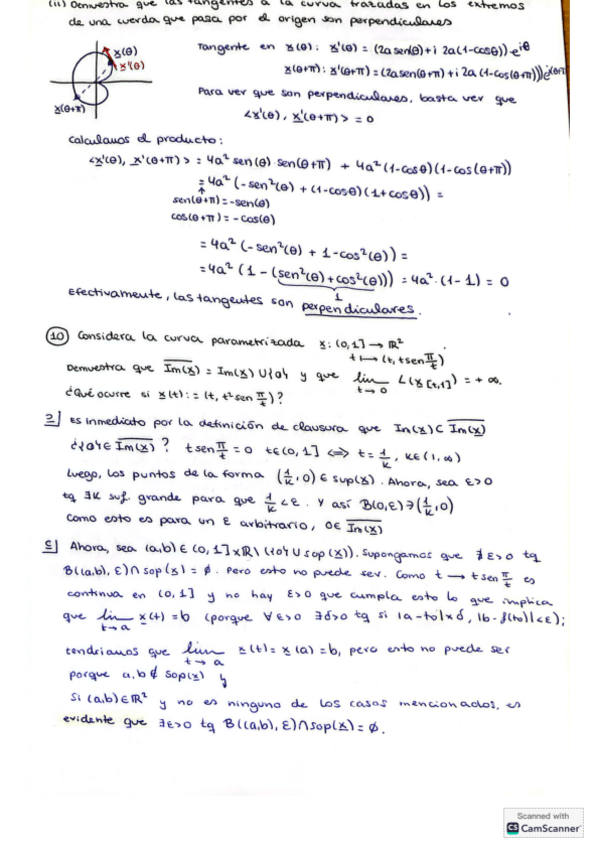 (ii) Demuestra que las tangentes a la curva trazadas en los extremos
de una cuerda que pasa por el origen son perpendiculares
x(θ)
x'(θ)
x(θ+π)
Tangente en x(θ): x'(θ) = (2a sen(θ) + i 2a(1-cosθ))·e^{iθ}
x(θ+π): x'(θ+π) = (2a sen(θ+π) + i 2a (1-cos(θ+π)))e^{i(θ+π)}
Para ver que son perpendiculares, basta ver que
<x'(θ), x'(θ+π)> = 0
Calculamos el producto:
<x'(θ), x'(θ+π)> = 4a² sen(θ) sen(θ+π) + 4a² (1-cosθ)(1-cos(θ+π))
= 4a² (-sen²(θ) + (1-cosθ)(1+cosθ)) =
↑
sen(θ+π) = -sen(θ)
cos(θ+π) = -cos(θ)
= 4a² (-sen²(θ) + 1-cos²(θ)) =
= 4a² (1 - (sen²(θ) + cos²(θ))) = 4a²·(1-1) = 0
1
Efectivamente, las tangentes son perpendiculares.
10 Considera la curva parametrizada x: (0,1] → ℝ²
t ↦ (t, t sen π/t)
Demuestra que \overline{Im(x)} = Im(x) ∪ {0} y que lim_{t→0} L(x_{[t,1]}) = +∞.
¿Qué ocurre si x(t) := (t, t² sen π/t)?
⊇] Es inmediato por la definición de clausura que Im(x) ⊂ \overline{Im(x)}
¿{0} ∈ \overline{Im(x)}? t sen π/t = 0 t∈(0,1] ⟺ t = 1/k, k∈(1,∞)
Luego, los puntos de la forma (1/k, 0) ∈ sup(x). Ahora, sea ε>0
tq ∃k suf. grande para que 1/k < ε. Y así B(0,ε) ∋ (1/k, 0)
Como esto es para un ε arbitrario, 0 ∈ \overline{Im(x)}
⊆] Ahora, sea (a,b) ∈ (0,1] x ℝ \ ({0} ∪ sop(x)). Supongamos que ∄ ε>0 tq
B((a,b), ε) ∩ sop(x) = ∅. Pero esto no puede ser. Como t → t sen π/t es
continua en (0,1] y no hay ε>0 que cumpla esto lo que implica
que lim_{t→a} x(t) = b (porque ∀ε>0 ∃δ>0 tq si |a-t₀|<δ, |b-f(t₀)|<ε);
tendríamos que lim_{t→a} x(t) = x(a) = b, pero esto no puede ser
porque a,b ∉ sop(x) y
si (a,b) ∈ ℝ² y no es ninguno de los casos mencionados, es
evidente que ∃ε>0 tq B((a,b), ε) ∩ sop(x) = ∅.
Scanned with
CS CamScanner